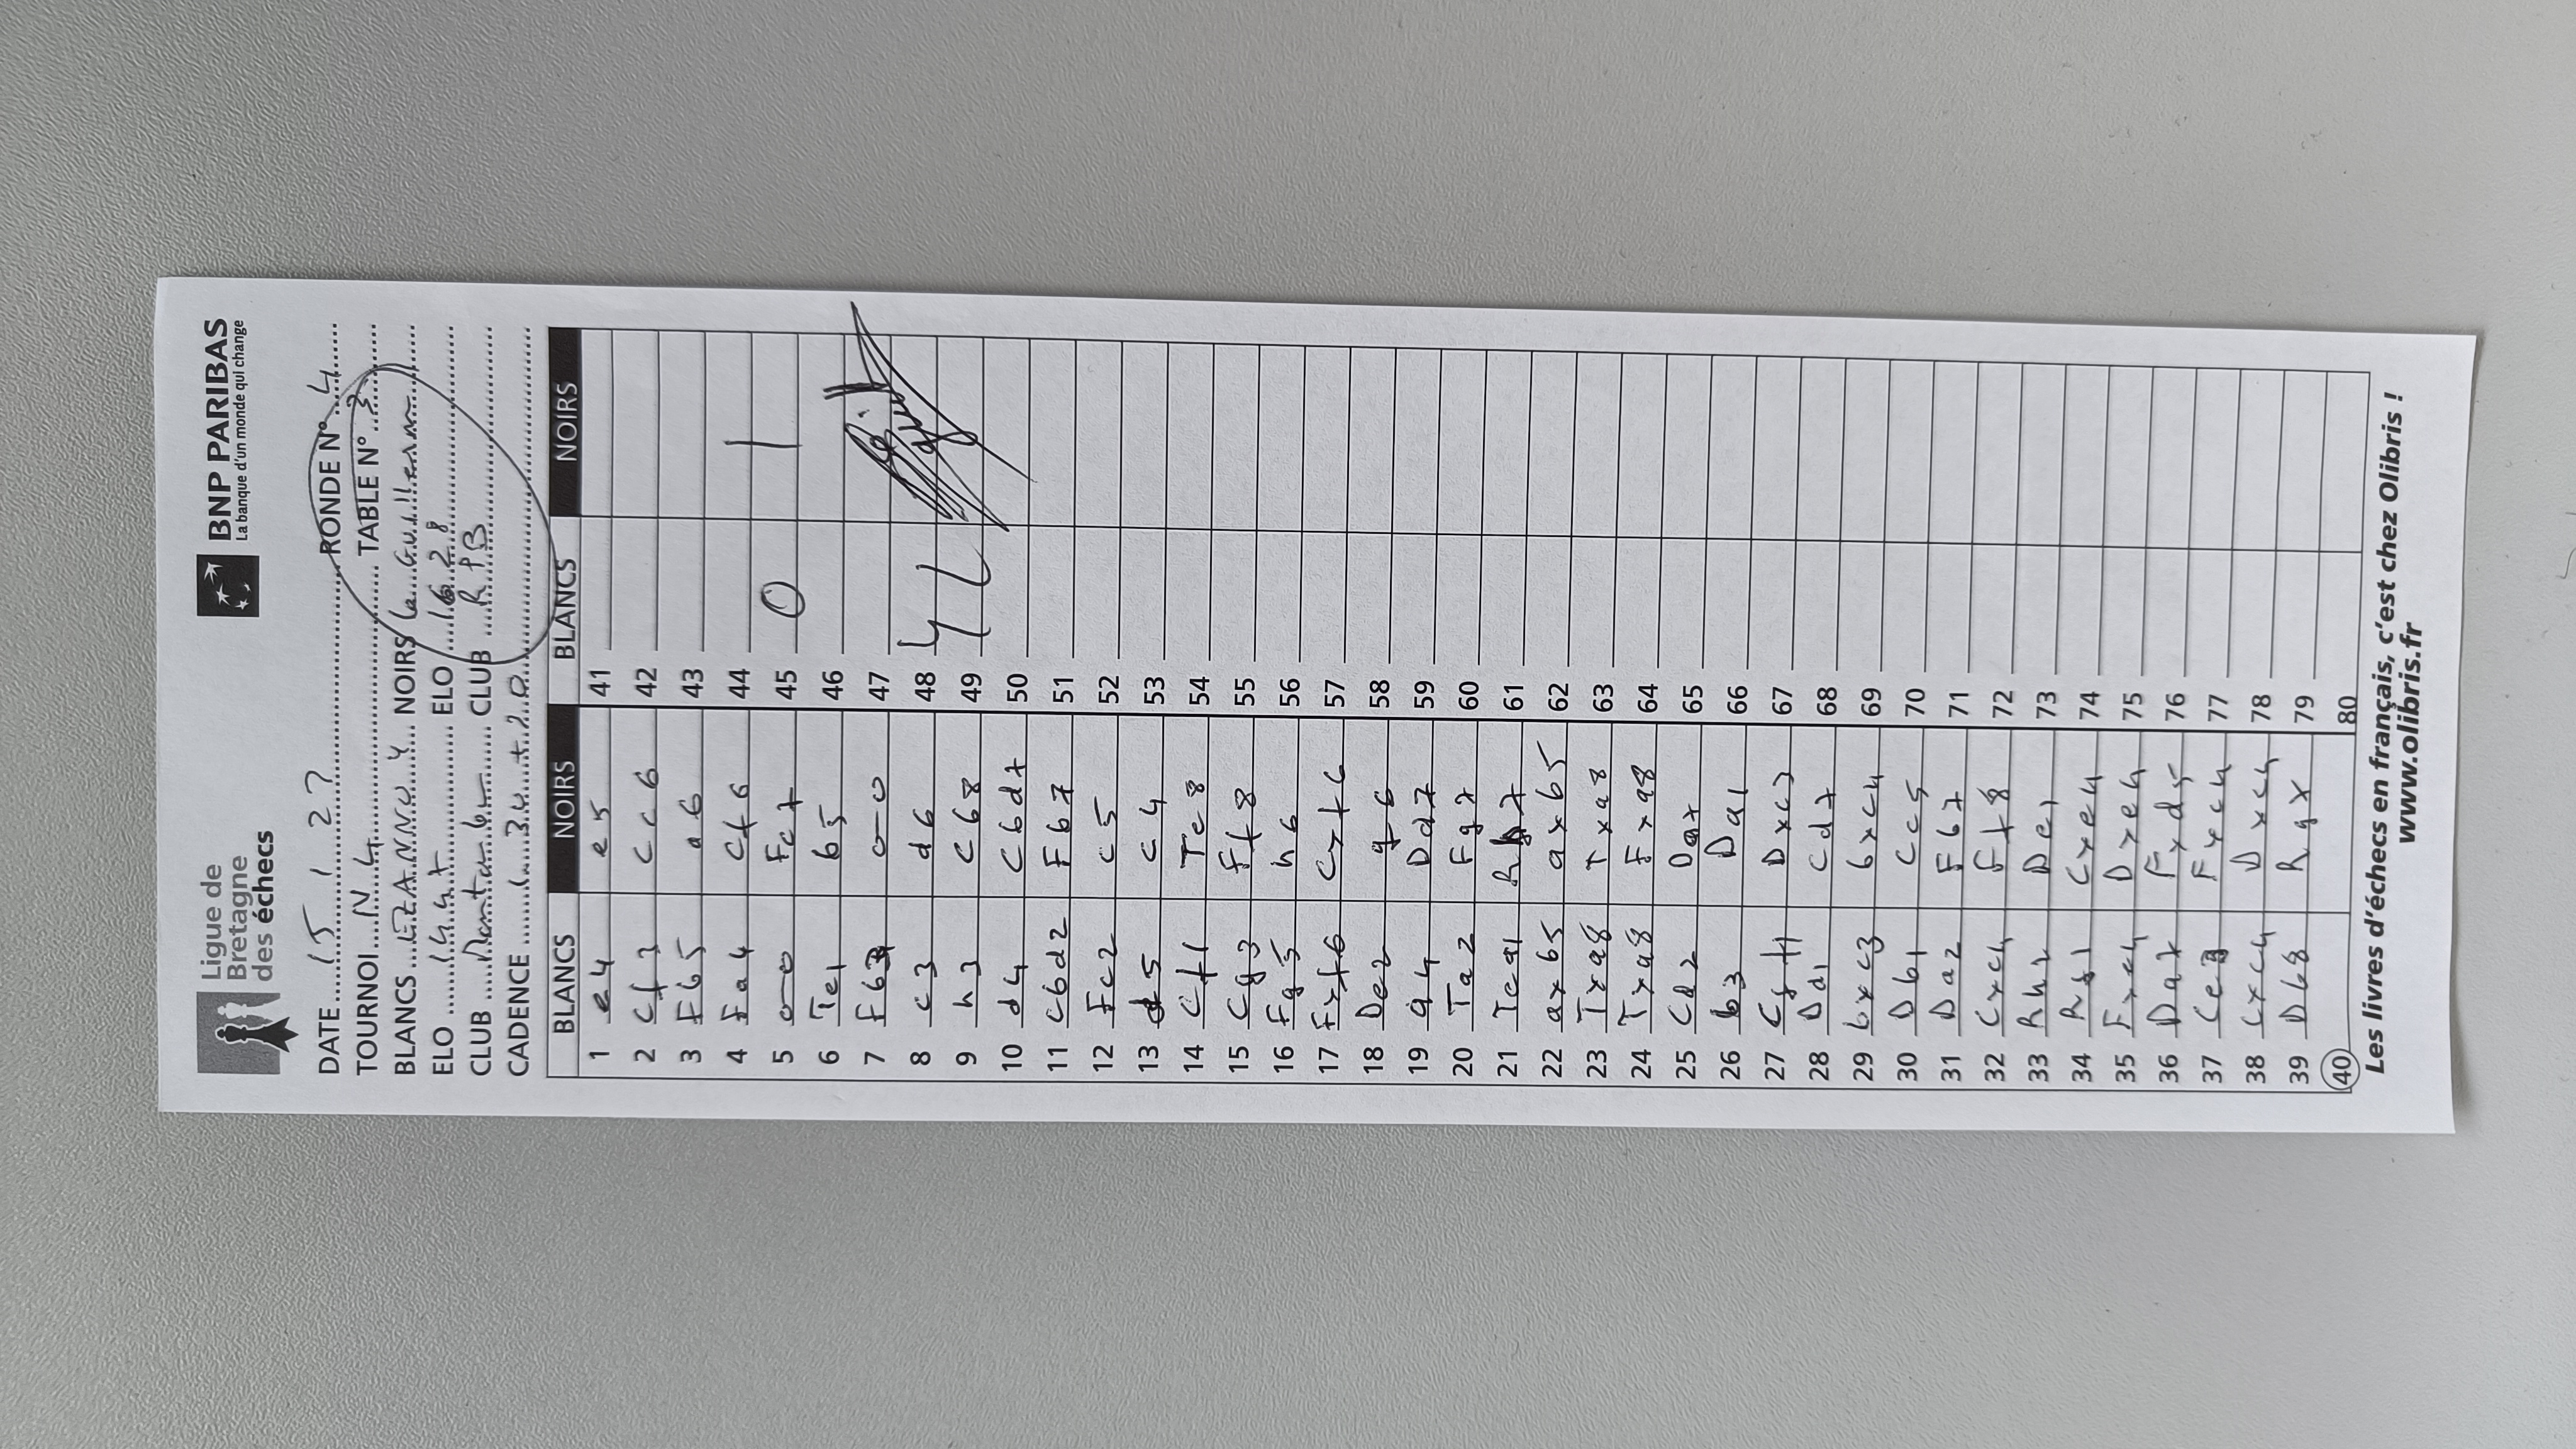 Ligue de
Bretagne
des échecs
BNP PARIBAS
La banque d'un monde qui change
DATE 15 1 27 RONDE N° 4
TOURNOI N4 TABLE N° 3
BLANCS EZANNO Y NOIRS Le Guillerm
ELO 1447 ELO 1628
CLUB CLUB RPB
CADENCE 1 30 + 20
BLANCS NOIRS BLANCS NOIRS
1 e4 e5 41
2 Cf3 Cc6 42
3 Fb5 a6 43
4 Fa4 Cf6 44
5 o-o Fc7 45 0 1
6 Te1 b5 46
7 Fb3 o-o 47
8 c3 d6 48
9 h3 Cb8 49
10 d4 Cbd7 50
11 Cbd2 Fb7 51
12 Fc2 c5 52
13 d5 c4 53
14 Cf1 Te8 54
15 Cg3 Ff8 55
16 Fg5 h6 56
17 Fxf6 Cxf6 57
18 De2 g6 58
19 a4 Dd7 59
20 Ta2 Fg7 60
21 Tea1 Rh7 61
22 axb5 axb5 62
23 Txa8 Txa8 63
24 Txa8 Fxa8 64
25 Cd2 Da7 65
26 b3 Da1 66
27 Cgf1 Dxc3 67
28 Dd1 Cd7 68
29 bxc3 bxc4 69
30 Db1 Cc5 70
31 Da2 Fb7 71
32 Cxc4 Ff8 72
33 Rh2 De1 73
34 Rg1 Cxe4 74
35 Fxe4 Dxe4 75
36 Da7 Fxd5 76
37 Ce3 Fxc4 77
38 Cxc4 Dxc4 78
39 Db8 Rg7 79
40 80
Les livres d'échecs en français, c'est chez Olibris !
www.olibris.fr